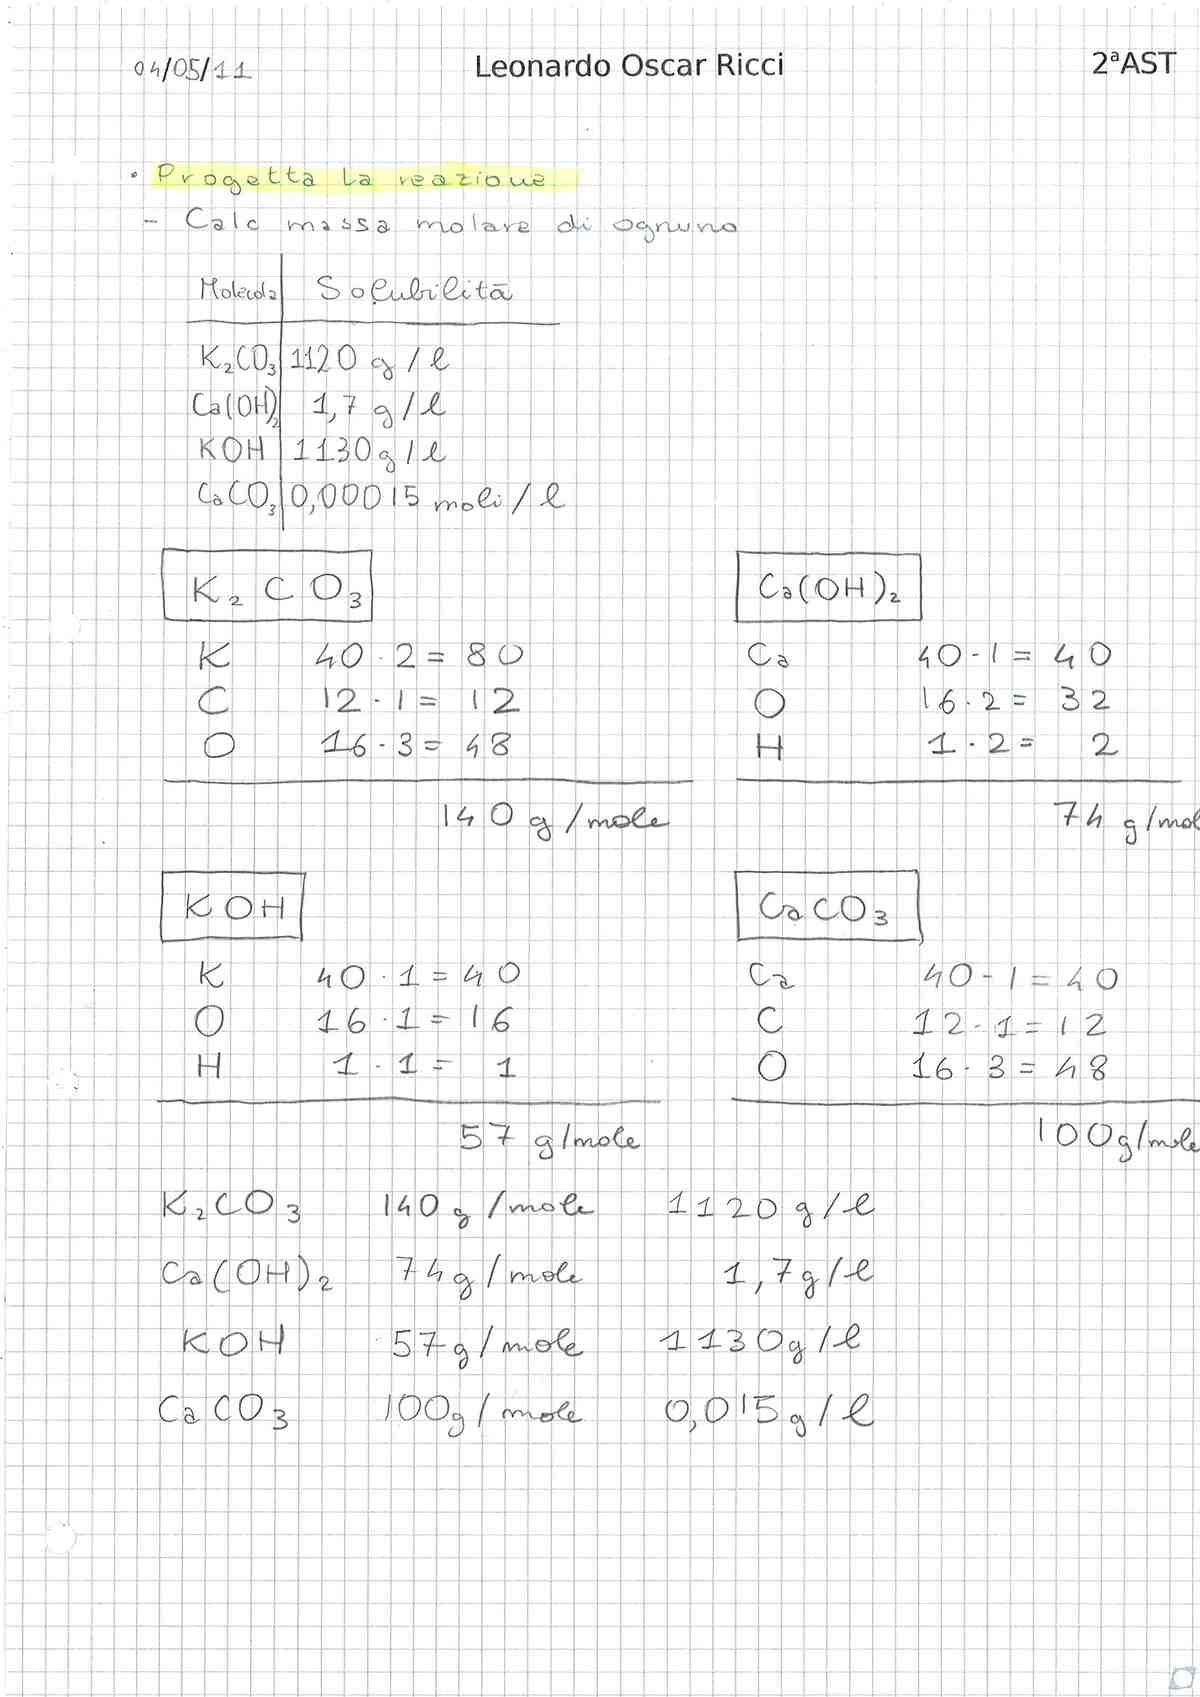 04/05/11 Leonardo Oscar Ricci 2ªAST
• Progetta la reazione
- Calc massa molare di ognuno
Molecola Solubilità
K₂CO₃ 1120 g/l
Ca(OH)₂ 1,7 g/l
KOH 1130 g/l
CaCO₃ 0,00015 moli/l
K₂CO₃ Ca(OH)₂
K 40·2= 80 Ca 40·1= 40
C 12·1= 12 O 16·2= 32
O 16·3= 48 H 1·2= 2
140 g/mole 74 g/mol
KOH CaCO₃
K 40·1=40 Ca 40·1=40
O 16·1=16 C 12·1=12
H 1·1= 1 O 16·3=48
57 g/mole 100g/mole
K₂CO₃ 140g/mole 1120g/l
Ca(OH)₂ 74g/mole 1,7g/l
KOH 57g/mole 1130g/l
CaCO₃ 100g/mole 0,015g/l